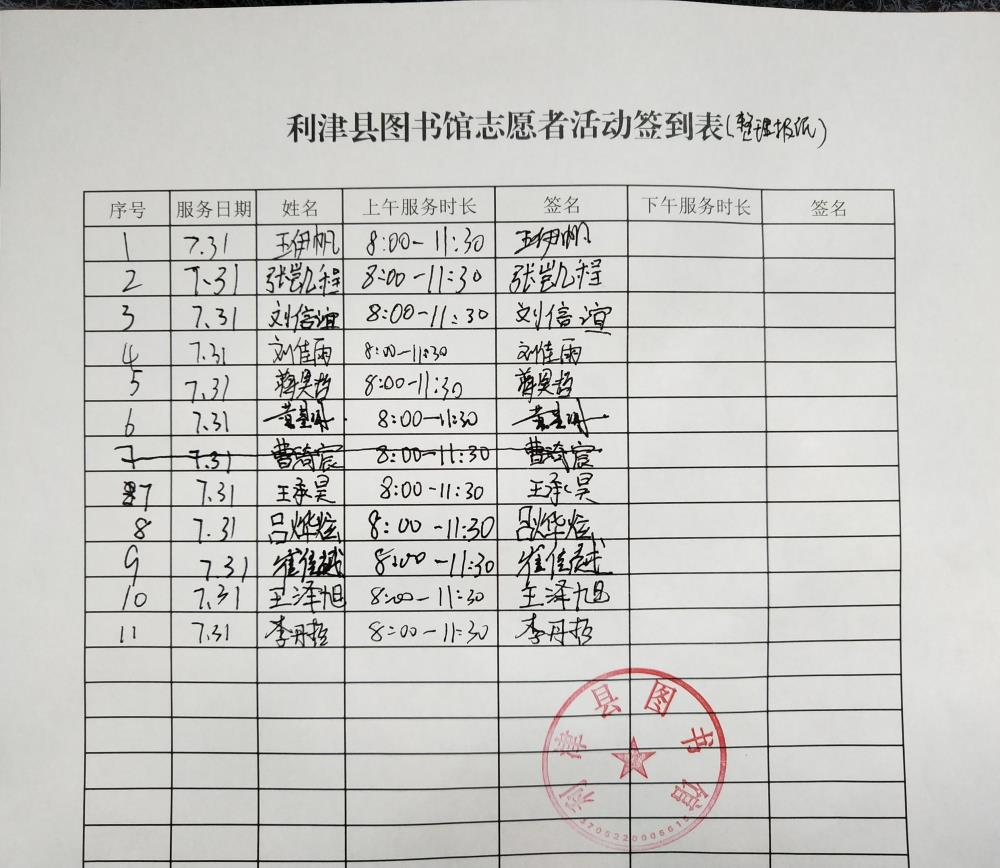 利津县图书馆志愿者活动签到表(整理报纸)
序号 服务日期 姓名 上午服务时长 签名 下午服务时长 签名
1 7.31 王伊帆 8:00-11:30 王伊帆
2 7.31 张凯程 8:00-11:30 张凯程
3 7.31 刘信谊 8:00-11:30 刘信谊
4 7.31 刘佳雨 8:00-11:30 刘佳雨
5 7.31 蒋昊哲 8:00-11:30 蒋昊哲
6 7.31 8:00-11:30
7 7.31 曹琦宸 8:00-11:30 曹琦宸
7 7.31 王承昊 8:00-11:30 王承昊
8 7.31 吕烨炫 8:00-11:30 吕烨炫
9 7.31 崔佳越 8:00-11:30 崔佳越
10 7.31 王泽旭 8:00-11:30 王泽旭
11 7.31 李丹哲 8:00-11:30 李丹哲
利津县图书馆